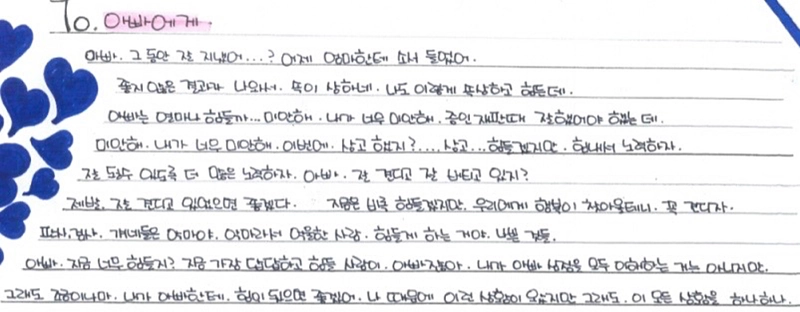 To. 아빠에게.
아빠. 그 동안 잘 지냈어...? 어제 엄마한테 소식 들었어.
좋지 않은 결과가 나와서. 속이 상하네. 나도 이렇게 속상하고 힘든데.
아빠는 얼마나 힘들까... 미안해. 내가 너무 미안해. 증인 재판때 잘했어야 했는데.
미안해. 내가 너무 미안해. 이번에. 상고 했지?....상고...힘들겠지만. 힘내서 노력하자.
잘 될수 있도록 더 많은 노력하자. 아빠. 잘 견디고 잘 버티고 있지?
제발. 잘 견디고 있었으면 좋겠다. 지금은 비록 힘들겠지만. 우리에게 행복이 찾아올테니. 꼭 견디자.
판사, 검사. 걔네들은 악마야. 악마라서 억울한 사람. 힘들게 하는 거야. 나쁜 것들.
아빠. 지금 너무 힘들지? 지금 가장 답답하고 힘들 사람이. 아빠잖아. 내가 아빠 심정을 모두 이해하는 거는 아니지만.
그래도 조금이나마. 내가 아빠한테. 힘이 되으면 좋겠어. 나 때문에 이런 상황이 오었지만 그래도. 이 모든 상황을 하나하나.